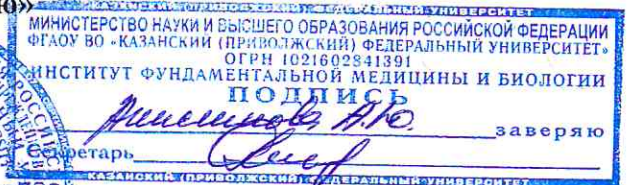 Ю»
КАЗАНСКИЙ (ПРИВОЛЖСКИЙ) ФЕДЕРАЛЬНЫЙ УНИВЕРСИТЕТ
МИНИСТЕРСТВО НАУКИ И ВЫСШЕГО ОБРАЗОВАНИЯ РОССИЙСКОЙ ФЕДЕРАЦИИ
ФГАОУ ВО «КАЗАНСКИЙ (ПРИВОЛЖСКИЙ) ФЕДЕРАЛЬНЫЙ УНИВЕРСИТЕТ»
ОГРН 1021602841391
ИНСТИТУТ ФУНДАМЕНТАЛЬНОЙ МЕДИЦИНЫ И БИОЛОГИИ
ПОДПИСЬ
А.Ю. заверяю
Секретарь
КАЗАНСКИЙ (ПРИВОЛЖСКИЙ) ФЕДЕРАЛЬНЫЙ УНИВЕРСИТЕТ